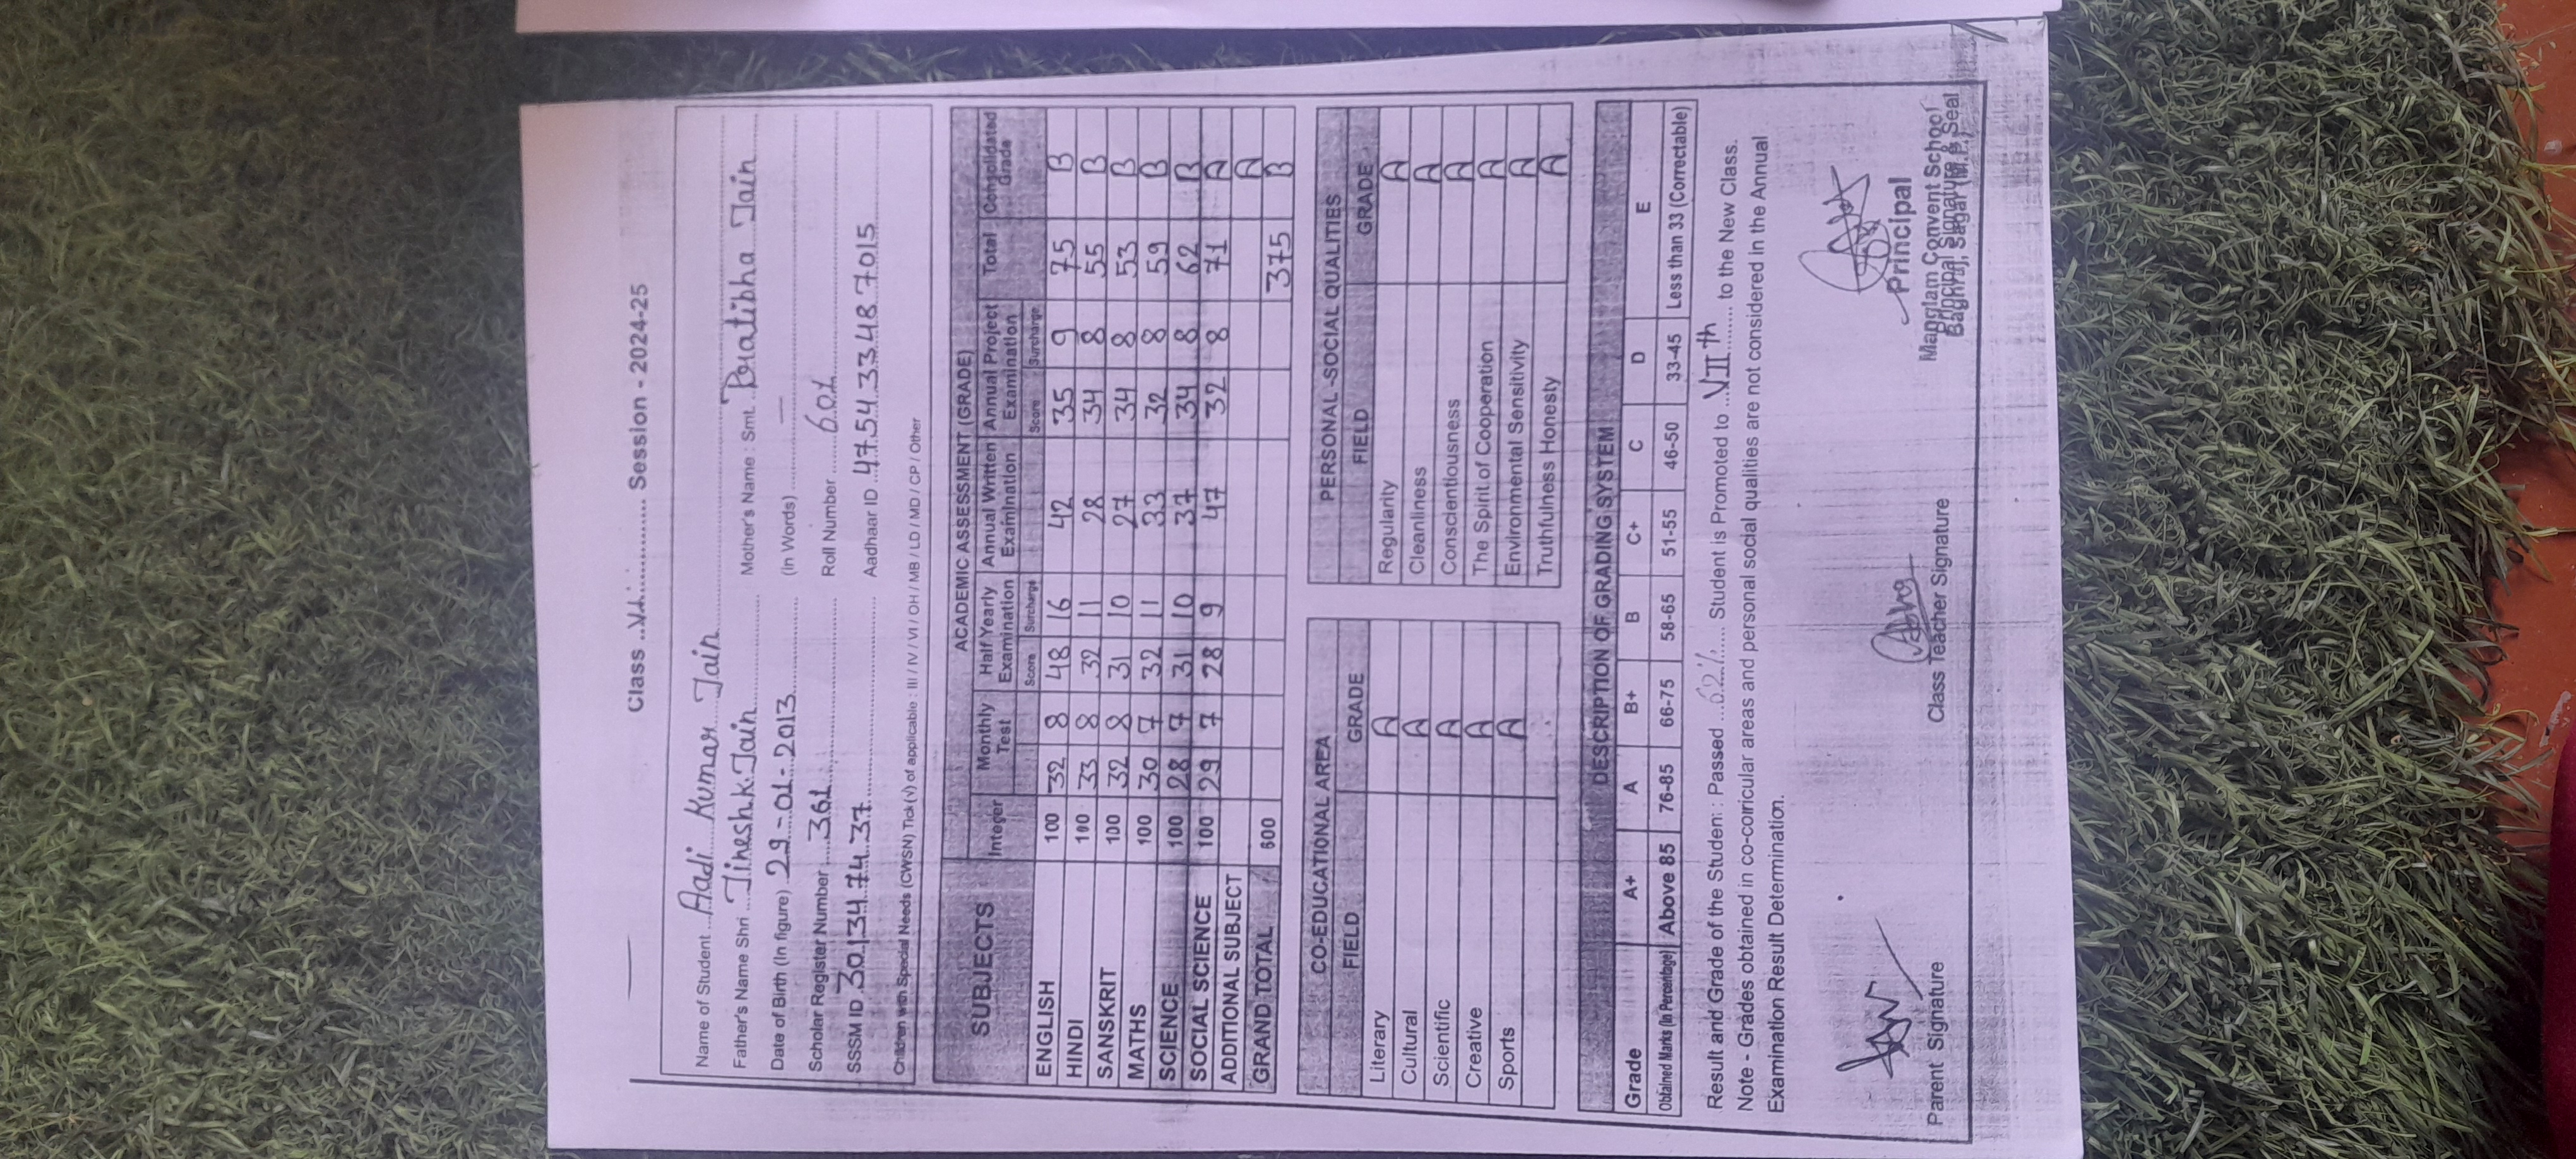 Class ..VI............. Session - 2024-25
Name of Student ...Aadi Kumar Jain
Father's Name Shri ...Jineshk.Jain......... Mother's Name : Smt. Pratibha Jain
Date of Birth (In figure) 29-01-2013 (In Words) —
Scholar Register Number ...361... Roll Number ...601
SSSM ID 301347437 Aadhaar ID 475433487015
Children with Special Needs (CWSN) Tick(√) of applicable : III / IV / VI / OH / MB / LD / MD / CP / Other
ACADEMIC ASSESSMENT (GRADE)
SUBJECTS Integer Monthly Test Half Yearly Examination Annual Written Examination Annual Project Examination Total Consolidated Grade
Score Surcharge Score Surcharge
ENGLISH 100 32 8 48 16 42 35 9 75 B
HINDI 100 33 8 32 11 28 34 8 55 B
SANSKRIT 100 32 8 31 10 27 34 8 53 B
MATHS 100 30 7 32 11 33 32 8 59 B
SCIENCE 100 28 7 31 10 37 34 8 62 B
SOCIAL SCIENCE 100 29 7 28 9 47 32 8 71 A
ADDITIONAL SUBJECT A
GRAND TOTAL 600 375 B
CO-EDUCATIONAL AREA
FIELD GRADE
Literary A
Cultural A
Scientific A
Creative A
Sports A
PERSONAL -SOCIAL QUALITIES
FIELD GRADE
Regularity A
Cleanliness A
Conscientiousness A
The Spirit of Cooperation A
Environmental Sensitivity A
Truthfulness Honesty A
DESCRIPTION OF GRADING SYSTEM
Grade A+ A B+ B C+ C D E
Obtained Marks (In Percentage) Above 85 76-85 66-75 58-65 51-55 46-50 33-45 Less than 33 (Correctable)
Result and Grade of the Studen: : Passed ...62%... Student is Promoted to ...VIIth... to the New Class.
Note - Grades obtained in co-corricular areas and personal social qualities are not considered in the Annual
Examination Result Determination.
Parent Signature
Class Teacher Signature
Principal
Manglam Convent School
Principal Signature & Seal
Sagar (M.P.)